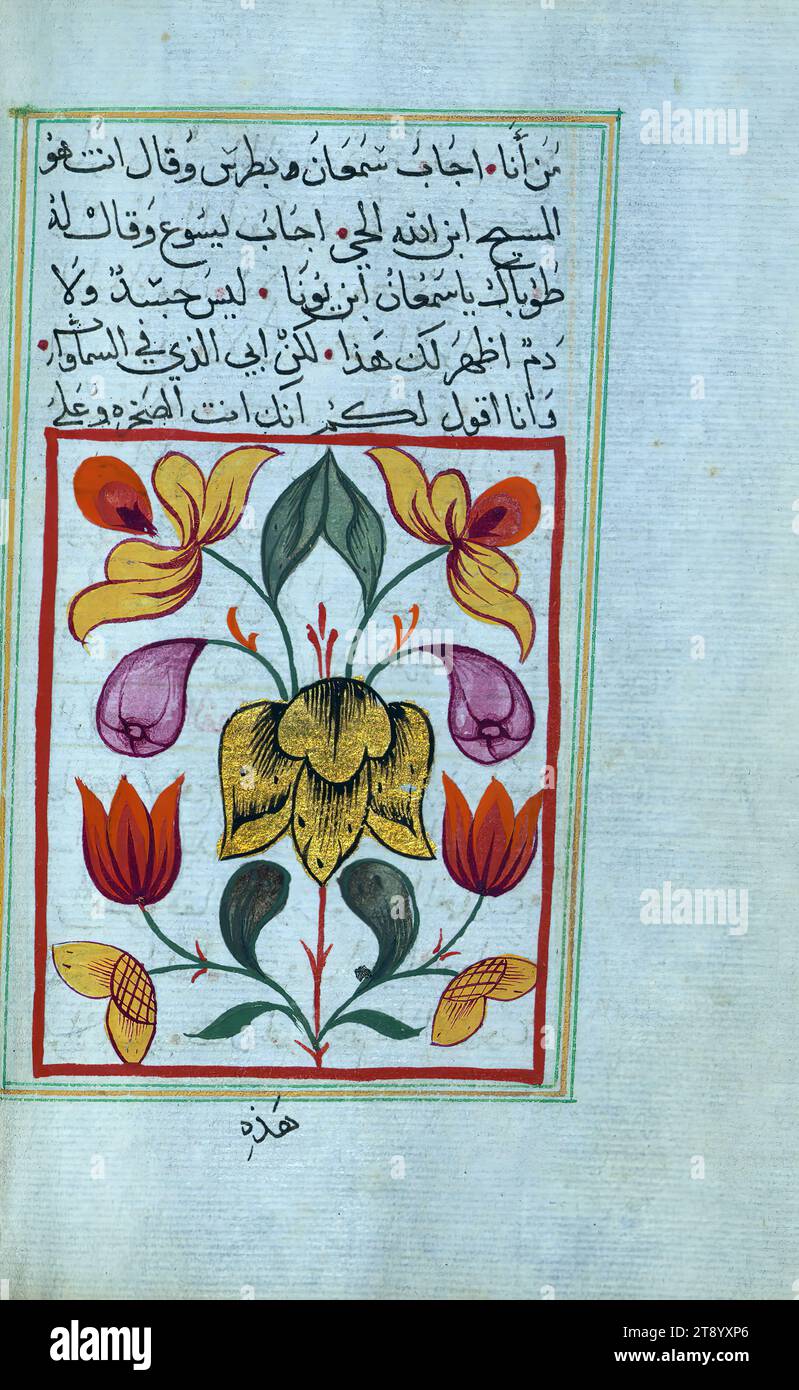 مَن أَنَا. اجَابَ سَمَعَانَ وبطرسَ وَقال انت هوَ
المسيح ابن الله الحي. اجَابَ ليسَوع وَقالَ لهُ
طوباكَ ياسَمعَانُ ابن يُونَا. ليسَ جسَدٌ وَلَا
دَمٌ اظهرَ لكَ هَذا. لكنْ ابي الذي في السماوات.
وَانا اقول لكم انك انت الصَخرهِ وَعَلى
هَذهِ
alamy
alamy
a
alamy
Image ID: 2T8YXP6
www.alamy.com